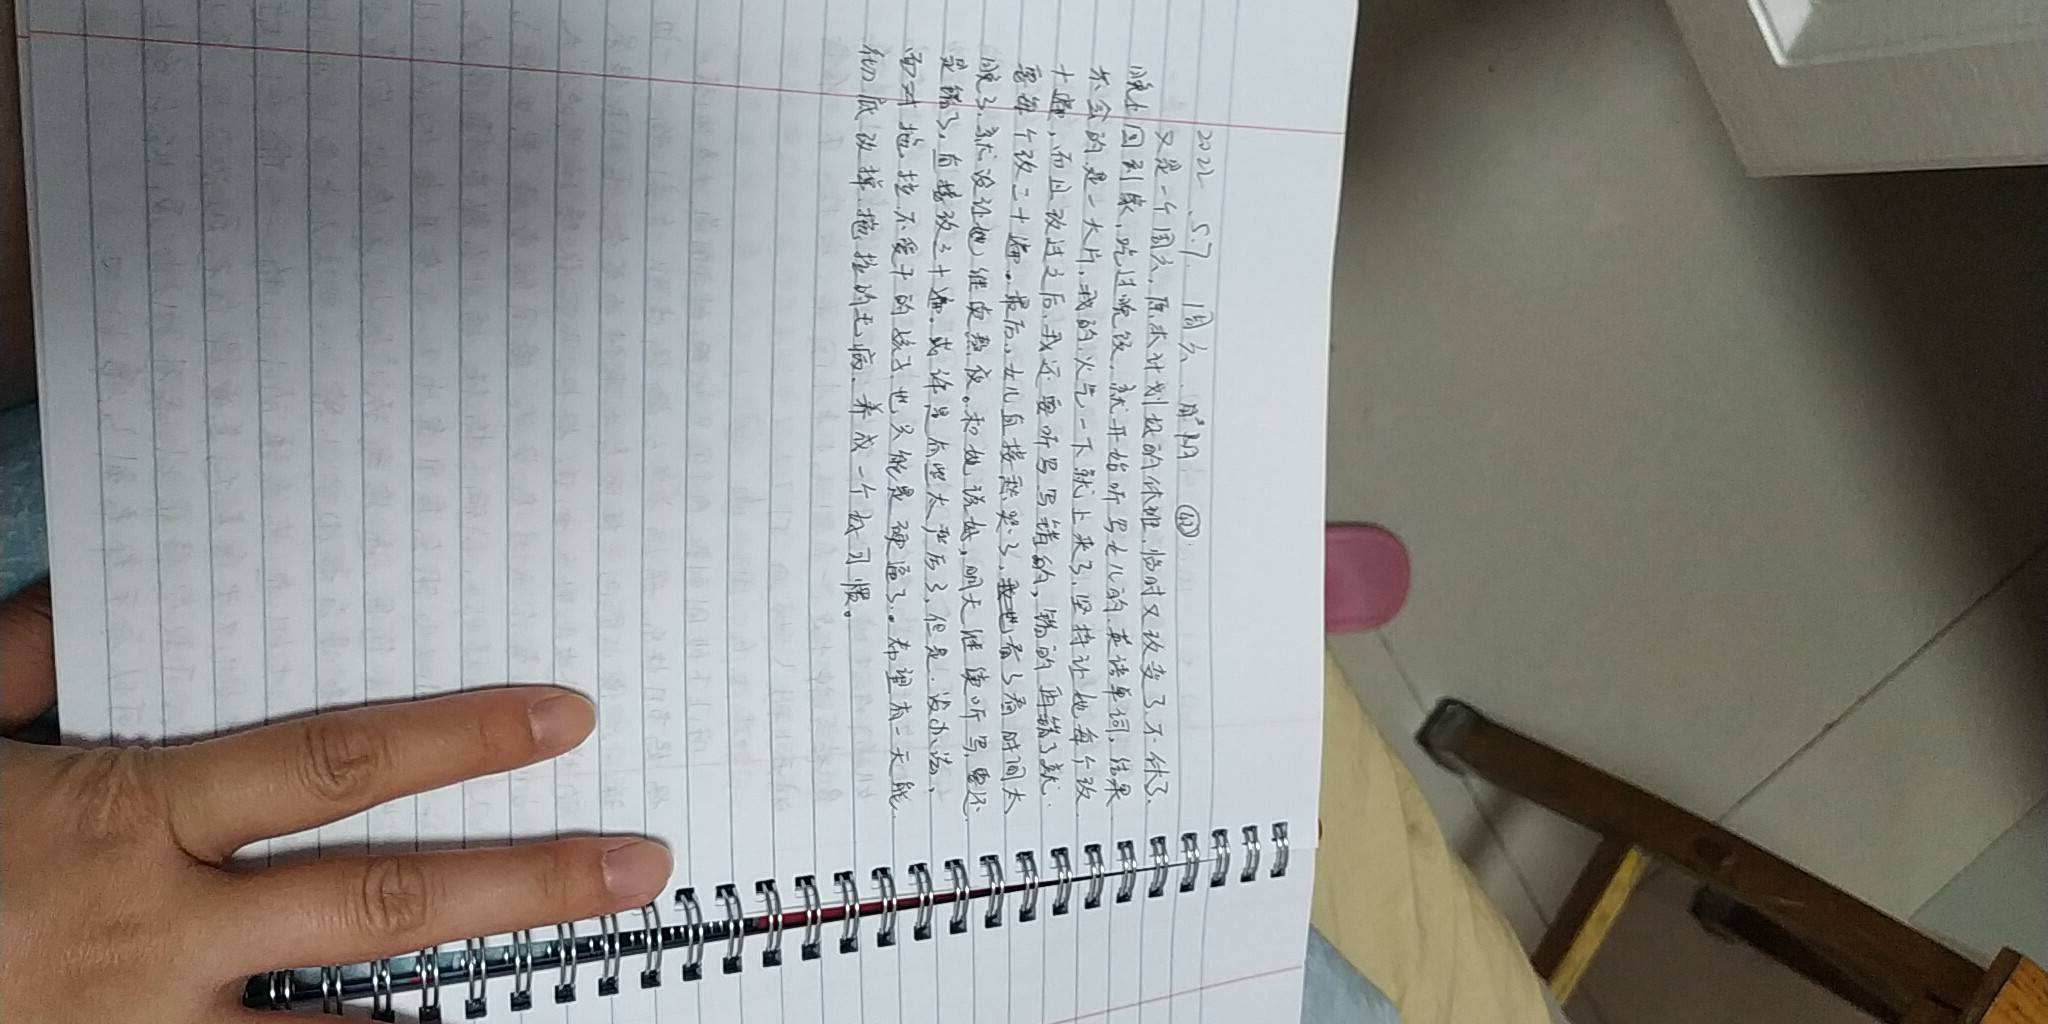 2022.5.7. 周六. 阴 ㊷.
又是一个周六, 原本计划好的休班, 临时又改变了, 不休了.
晚上回到家, 吃过晚饭, 就开始听写女儿的英语单词, 结果
不会的是一大片, 我的火气一下就上来了, 坚持让她每个改
十遍, 而且改过之后, 我还要听写写错的, 错的再错了就
要每个改二十遍。最后, 女儿直接愁哭了, 看了看时间太
晚了, 就没让她继续熬夜。和她说好, 明天继续听写, 还
是错了, 直接改三十遍. 或许是有些太严厉了, 但是, 没办法,
面对拖拉不爱干的孩子, 也只能是硬逼了。希望有一天能
彻底改掉拖拉的毛病, 养成一个好习惯。